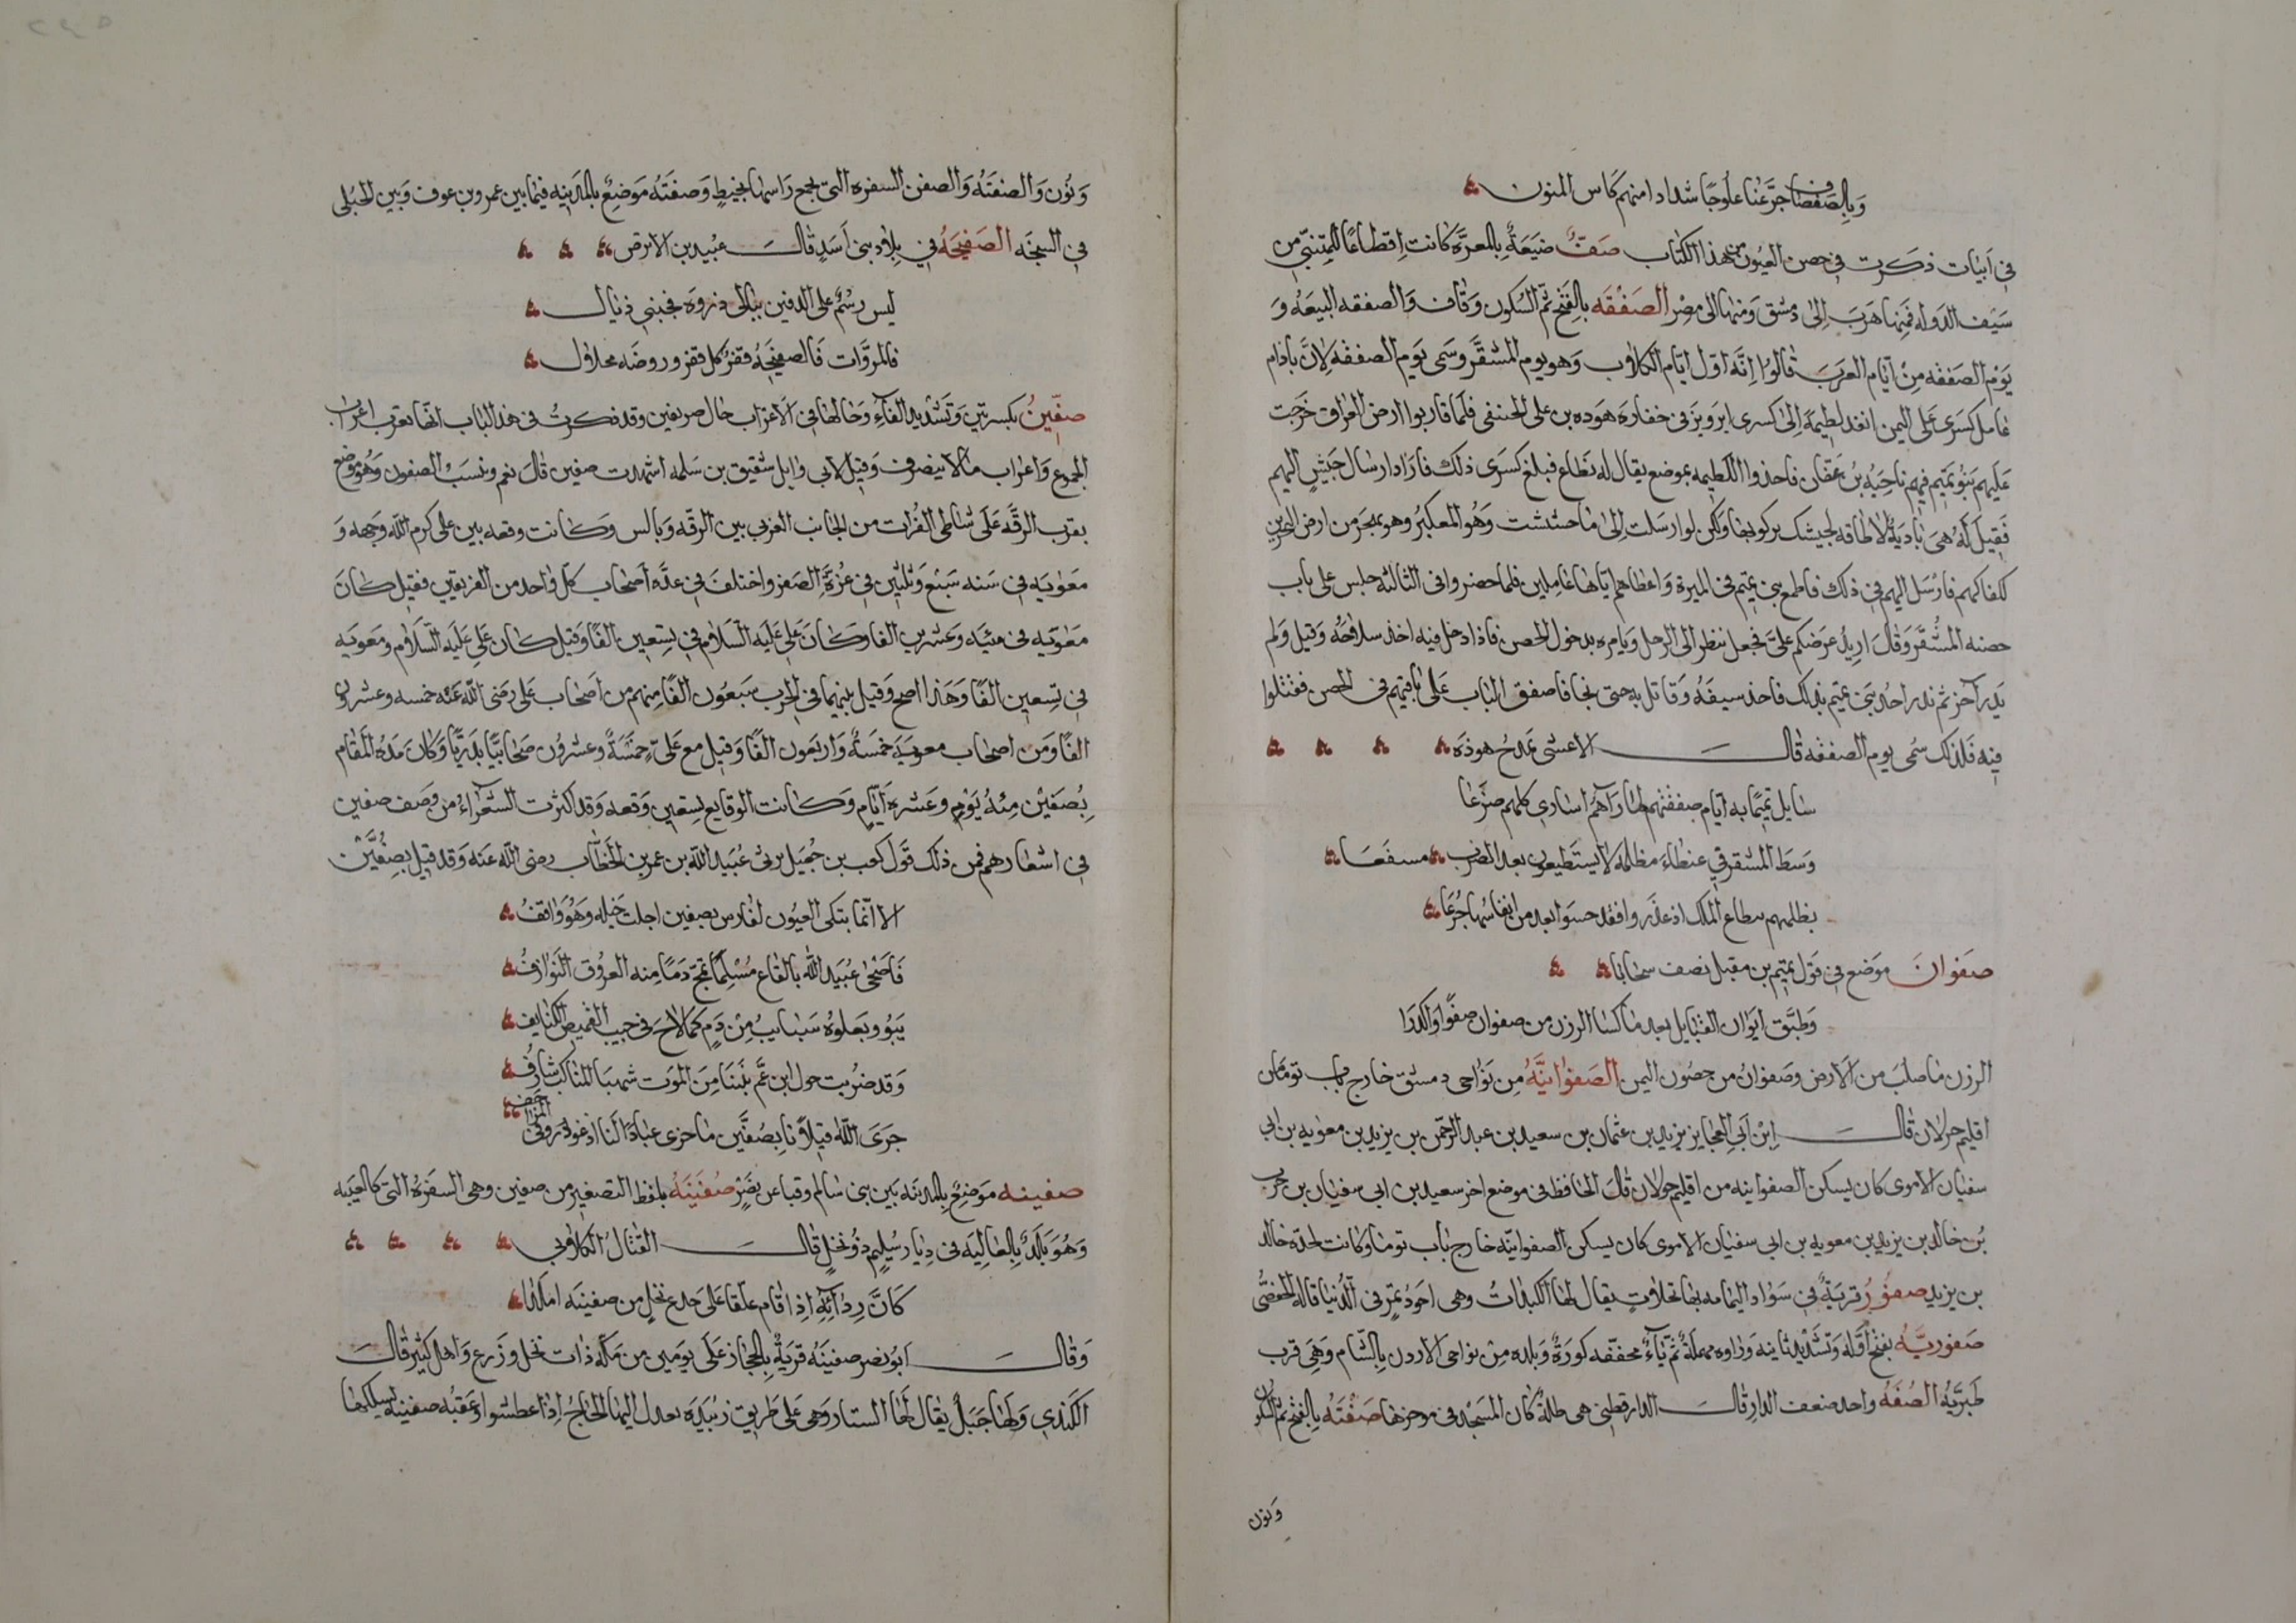 وبالصفصاف جرّعنا علوجًا شدادا منهم كاس المنون
في ابيات ذكرت في حصن العيون من هذا الكتاب صفّ ضيعة بالمعرّة كانت اقطاعًا للمتنبي من
سيف الدوله فمنها هرب الى دمشق ومنها الى مصر الصفقه بالفتح ثم السكون وقاف والصفقه البيعه و
يوم الصفقه من ايام العرب قالوا انه اول ايام الكلاب وهو يوم المشقر وسمى يوم الصفقه لان باذام
عامل كسرى على اليمن انفذ لطيمة الى كسرى ابرويز في خفارة هوذه بن على الحنفى فلما قاربوا ارض العراق خرجت
عليهم بنو تميم فيهم ناجيه بن عقان فاخذوا اللطيمه بموضع يقال له نطاع فبلغ كسرى ذلك فاراد ارسال جيش اليهم
فقيل له هى بادية لا طاقه لجيشك بركوبها ولكن لو ارسلت الى ماحشنشت وهو المعكبر وهو بهجر من ارض البحرين
لكفاكهم فارسل اليهم في ذلك فاطمع بنى تميم في الميرة واعطاهم اياها عامين فلما حضروا في الثالثه جلس على باب
حصنه المشقر وقال اريد عرضكم علىّ فجعل ينظر الى الرجل ويامره بدخول الحصن فاذا دخل فيه اخذ سلاحه وقيل ولم
يدر آخر ثم ندر احد بنى تميم بذلك فاخذ سيفه وقاتل به حتى نجا فاصفق الباب على باقيهم في الحصن فقتلوا
فيه فلذلك سمى يوم الصفقه قال الاعشى يمدح هوذه
سايل تميمًا به ايام صفقتهم لما رآهم اسارى كلهم ضرعا
وسط المشقر في عنطاء مظلمه لا يستطيعون بعد الضرب مسفعا
بظلمهم بنطاع الملك اذ غدروا فقد حسوا بعد من انفاسها جرعا
صفوان موضع في قول تميم بن مقبل نصف سحابا
وطبّق ايوان القبايل بعد ما كسا الرزن من صفوان صفوا واكدرا
الرزن ما صلب من الارض وصفوان من حصون اليمن الصفوانيّه من نواحى دمشق خارج باب توما من
اقليم حولان قال ابن ابى العجايز يزيد بن عثمان بن سعيد بن عبد الرحمن بن يزيد بن معويه بن ابى
سفيان الاموى كان يسكن الصفوانيه من اقليم حولان قال الحافظ في موضع اخر سعيد بن ابى سفيان بن حرب
بن خالد بن يزيد بن معويه بن ابى سفيان الاموى كان يسكن الصفوانيّه خارج باب توما وكانت لجدّه خالد
بن يزيد صفور قرية في سواد اليمامه بها نخلات يقال لها الكبدات وهى اجود تمر في الدنيا قاله الحفصى
صفوريّه بفتح اوله وتشديد ثانيه وواوه مهملة ثم يآء مخففه كورة وبلده من نواحى الاردن بالشام وهى قرب
طبريّه الصفه واحد صفف الدار قال الدارقطنى هى ظلة كان المسجد في موخرها صفنه بالفتح ثم السكون
ونون
ونون والصفنه والصفن السفره التى يجمع راسها بخيط وصفنه موضع بالمدينه فيما بين عمرو بن عوف وبين الحبلى
في السبخه الصفيحه في بلاد بنى اسد قال عبيد بن الابرص
ليس رسم على الدفين ببالى فلوى ذروه فجنبي ذيال
فالمروّات فالصفيحه قفر كل قفر وروضه محلال
صفّين بكسرتين وتشديد الفآء وحالها في الاعراب حال صريفين وقد ذكرت في هذ الباب انها تعرب اعراب
الجموع واعراب مالا ينصرف وقيل لابى وايل شقيق بن سلمه اشهدت صفين قال نعم وبئست الصفون وهو موضع
بقرب الرقّه على شاطى الفرات من الجانب الغربى بين الرقه وبالس وكانت وقعه بين على كرم الله وجهه و
معويه في سنه سبع وثلثين في غرّة الصفر واختلف في عدّه اصحاب كل واحد من الفريقين فقيل كان
معويه في مئيه وعشرين الفا وكان علي عليه السلام في تسعين الفًا وقيل كان علي عليه السلام ومعويه
في تسعين الفًا وهذا اصح وقيل بينهما في الحرب سبعون الفًا منهم من اصحاب على رضى الله عنه خمسه وعشرون
الفًا ومن اصحاب معويه خمسة واربعون الفًا وقيل مع على خمسة وعشرون صحابيًا بدريًا وكان مده المقام
بصفين مئه يوم وعشره ايام وكانت الوقايع تسعين وقعه وقد اكثرت الشعراء من وصف صفين
في اشعارهم فمن ذلك قول كعب بن جعيل يرثى عبيد الله بن عمر بن الخطّاب رضى الله عنه وقد قتل بصفّين
الا انما تبكى العيون لفارس بصفين اجلت خيله وهو واقف
فاضحى عبيد الله بالقاع مسلمًا تمج دمًا منه العروق النوازف
ينوو وتعلوه سبايب من دم كما لاح في جيب القميص الكفايف
وقد ضربت حول ابن عم نبينا من الموت شهبا المناكب شارف
جزى الله قتلانا بصفّين ما جزى عبادًا لنا اذ غودروا في المزاحف
صفينه موضع بالمدينه بين بنى سالم وقبا عن نصر صفينه بلفظ التصغير من صفين وهى السفره التى كالعيبه
وهو بلد بالعاليه في ديار سليم ذو نخل قال القتال الكلابى
كان ردآئه اذا قام علّقا على جذع نخل من صفينه املدا
وقال ابو نصر صفينه قرية بالحجاز على يومين من مكه ذات نخل وزرع واهل كثير قال
الكندى ولها جبل يقال لها الستار وهى على طريق زبيده يعدل اليها الحاج اذا عطشوا وعقبه صفينه يسلكها